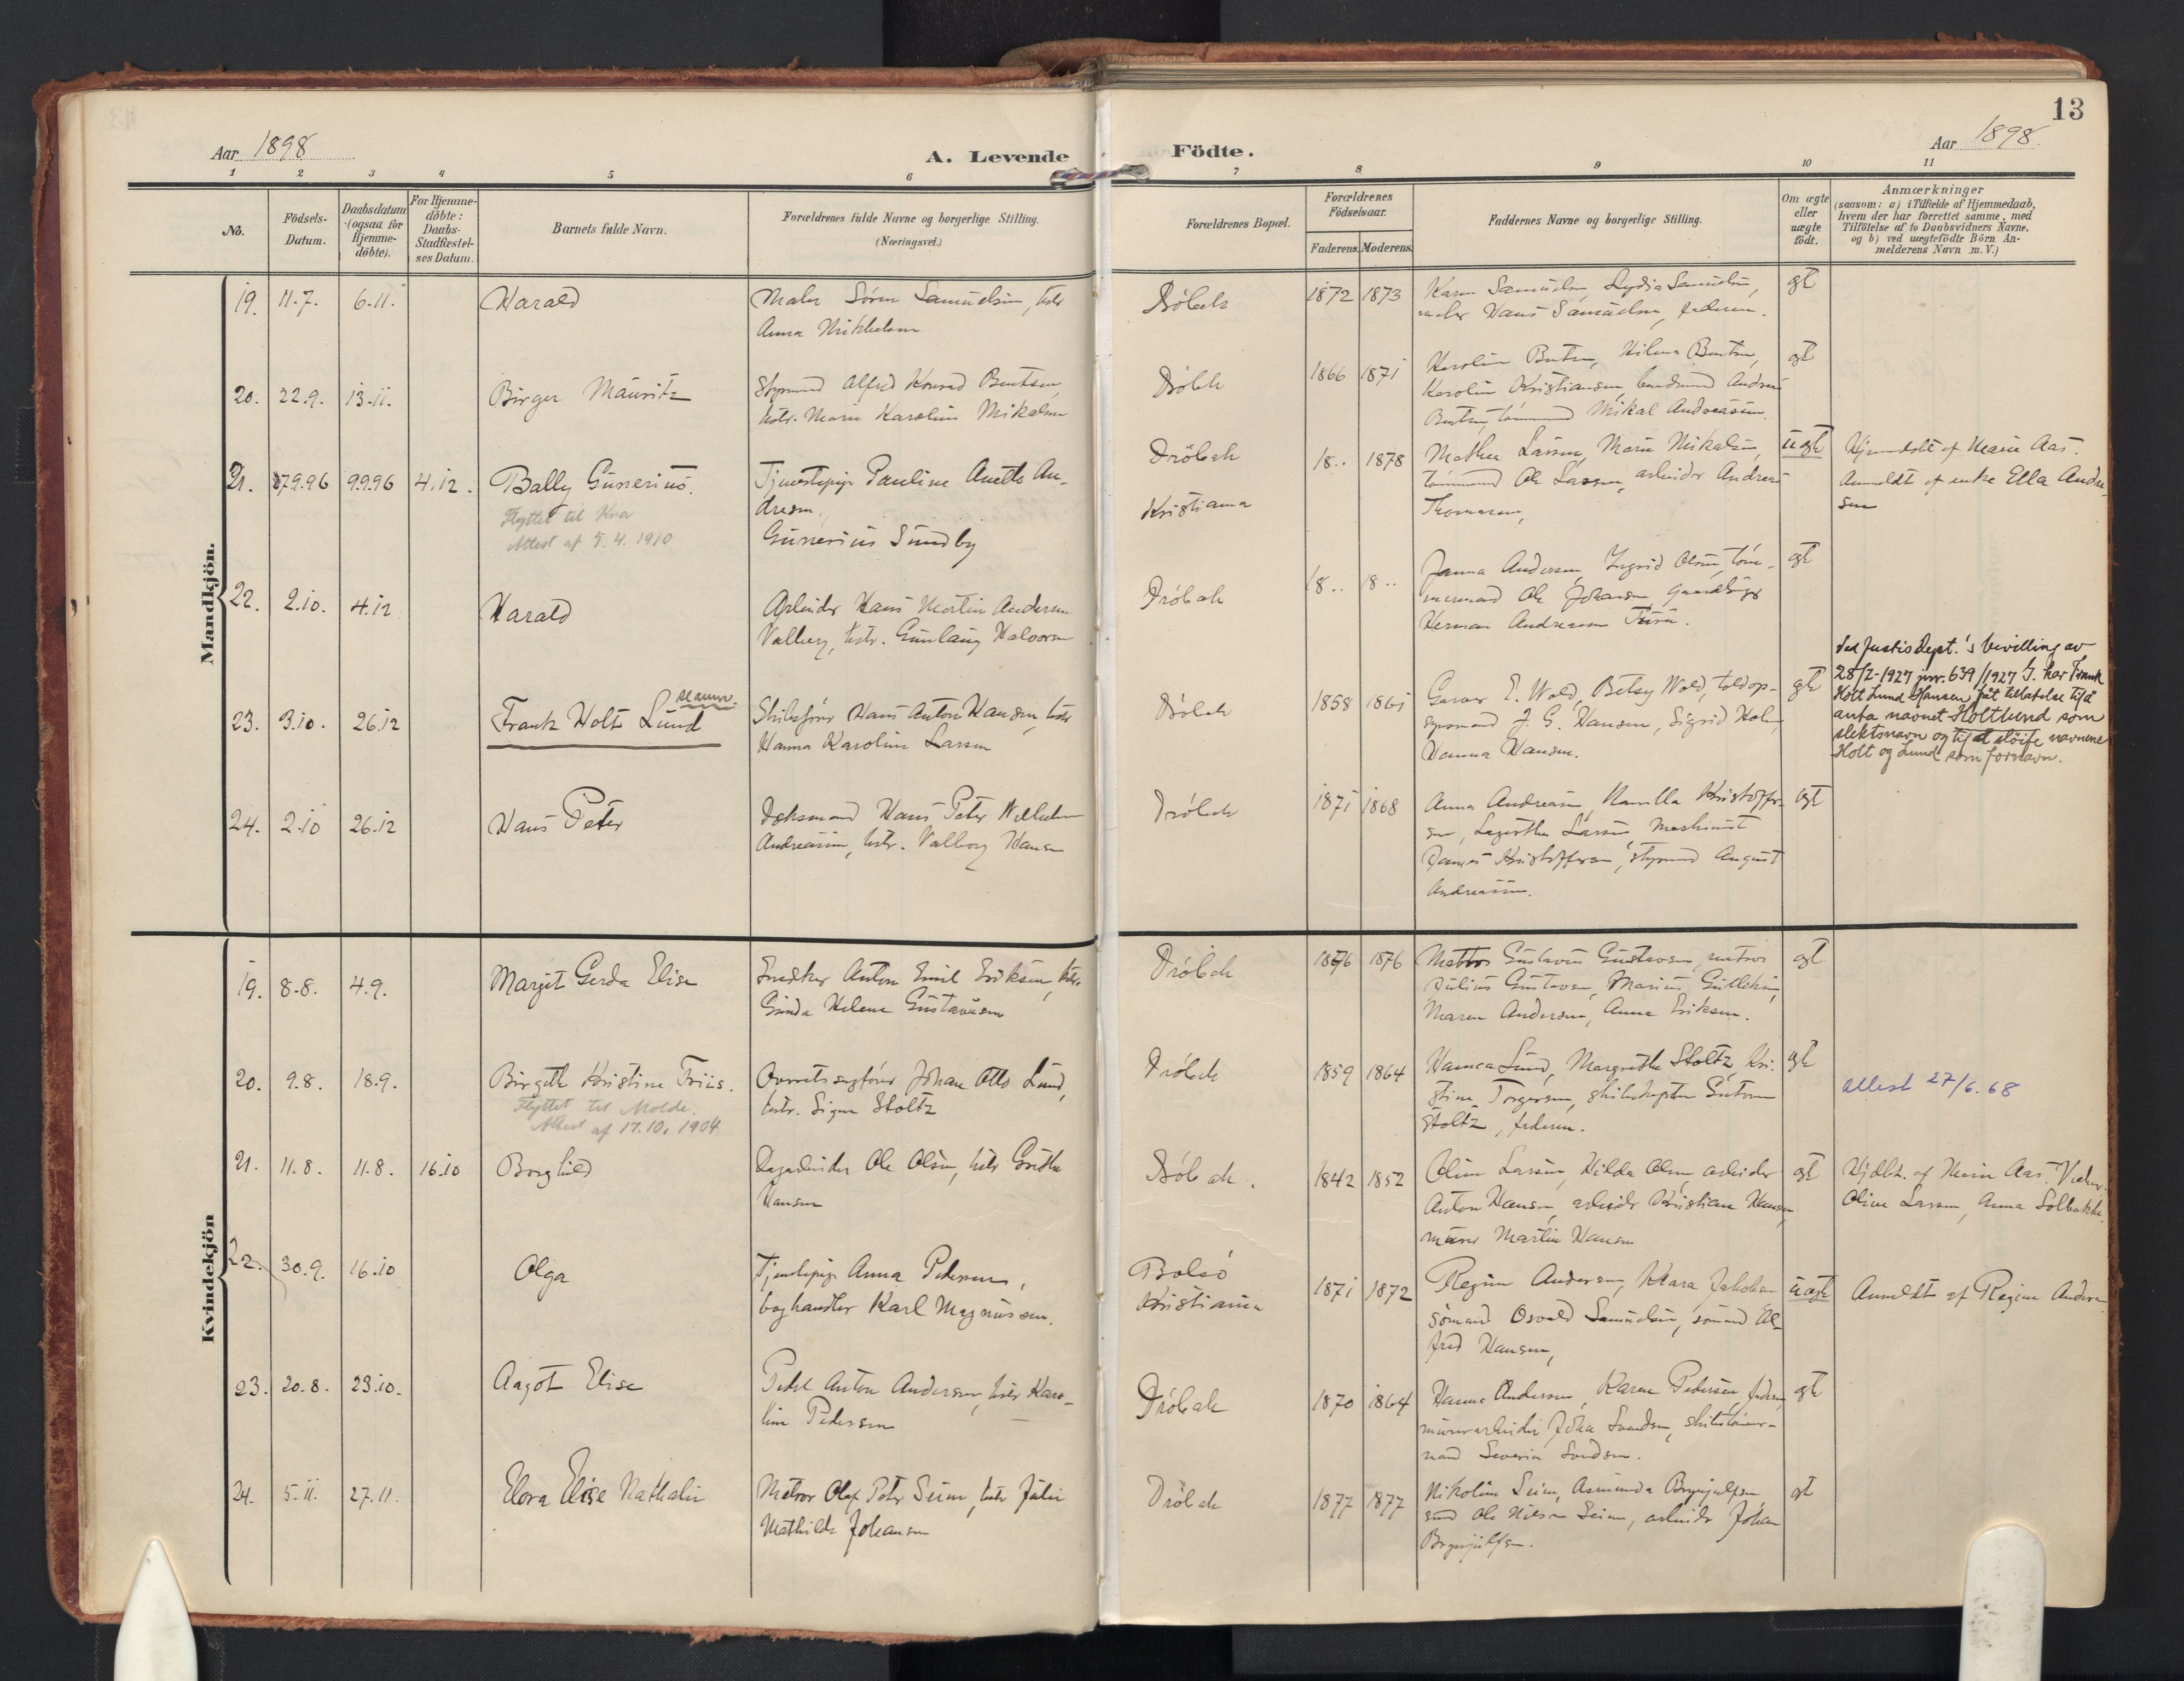 13
Aar 1898
A. Levende Födte.
Aar 1898.
1 2 3 4 5 6 7 8 9 10 11
No.
Födsels-
Datum.
Daabsdatum
(ogsaa for
Hjemme-
döbte).
For Hjemme-
döbte:
Daabs-
Stadfæstel-
ses Datum.
Barnets fulde Navn.
Forældrenes fulde Navne og borgerlige Stilling.
(Næringsvei.)
Forældrenes Bopæl.
Forældrenes
Födselsaar.
Faderens. Moderens.
Faddernes Navne og borgerlige Stilling.
Om ægte
eller
uægte
födt.
Anmærkninger
(saasom: a) i Tilfælde af Hjemmedaab,
hvem der har forrettet samme, med
Tilföielse af to Daabsvidners Navne,
og b) ved uægtefödte Börn An-
melderens Navn m.V.)
Mandkjön.
19. 11.7. 6.11. Harald
Maler Sören Samuelsen, hstr
Anna Mikkelsen
Dröbak 1872 1873
Karen Samuelsen, Lydia Samuelsen,
maler Hans Samuelsen, faderen.
gt
20. 22.9. 13.11. Birger Mauritz
Styrmand Alfred Konrad Bentsen,
hstr. Marie Karoline Mikalsen
Dröbak 1866 1871
Karolin Bentsen, Hilma Bentsen,
Karolin Kristiansen, Andreas
Bentsen, tömmermand Mikal Andreassen.
gt
21. 7.9.96 9.9.96 4.12. Bally Gunerius.
Flyttet til Kra
Attest af 5.4.1910
Tjenestepige Pauline Anette An-
dresen,
Gunerius Sundby
Dröbak
Kristiania
18.. 1878
Mathea Larsen, Marie Mikalsen,
tömmermand Ole Larsen, arbeider Andreas
Thomasen,
uægt
Hjemmedöbt af Marie Aas.
Anmeldt af enke Ella Andre-
sen
22. 2.10. 4.12 Harald
Arbeider Hans Martin Andersen
Valberg, hstr. Gunlaug Halvorsen
Dröbak 18.. 18..
Janna Andersen, Ingrid Olsen, töm-
mermand Ole Johansen
Herman Andreasen
gt
23. 3.10. 26.12 Frank Holt Lund
se anm.
Skibsförer Hans Anton Hansen, hstr
Hanna Karoline Larsen
Dröbak 1858 1861
E. Wold, Betsy Wold, toldop-
synsmand J. G. Hansen, Sigrid Holm,
Hanna Hansen.
gt
Ved Justisdept.'s bevilling av
28/2-1927 jnr. 639/1927 J. har Frank
Holt Lund Hansen fåt tillatelse til å
anta navnet Holtlund som
slektsnavn og til at slöife navnene
Holt og Lund som fornavn.
24. 2.10 26.12 Hans Peter
Hans Peter Wilhelm
Andreassen, hstr. Valborg Hansen
Dröbak 1871 1868
Anna Andreasen, Kamilla Kristoffer-
sen, Lagertha Larsen, Maskinist
Kristoffersen, styrmand August
Andreassen.
gt
Kvindekjön
19. 8.8. 4.9. Margit Gerda Elise
Snedker Anton Emil Eriksen, hstr.
Ginda Helene Gustavsen
Dröbak 1876 1876
Matros Gustav Gustavsen, matros
Julius Gustavsen, Marius Gulliksen,
Maren Andersen, Anna Eriksen.
gt
20. 9.8. 18.9. Birgette Kristine Friis.
Flyttet til Molde.
Attest af 17.10.1904.
Overretssagförer Johan Otto Lund,
hstr. Signe Stoltz
Dröbak 1859 1864
Hanna Lund, Margrethe Stoltz, Kri-
stine Torgersen, skibskaptein
Stoltz, faderen.
gt
Attest 27/6.68
21. 11.8. 11.8. 16.10 Borghild
Ole Olsen, hstr Grethe
Hansen
Dröbak. 1842 1852
Oline Larsen, Hilda Olsen, arbeider
Anton Hansen, arbeider Kristian Hansen,
murer Martin Hansen
gt
Hjdbt. af Marie Aas. Vidner
Oline Larsen, Anna Solbakke.
22. 30.9. 16.10 Olga
Tjenestepige Anna Pedersen,
boghandler Karl Magnussen.
Bolsö
Kristiania
1871 1872
Regine Andersen, Klara Jakobsen
sömand Osvald Samuelsen, sömand Al-
fred Hansen,
uægt
Anmeldt af Regine Andersen
23. 20.8. 23.10. Aagot Elise
Peder Anton Andersen, hstr Karo-
line Pedersen
Dröbak 1870 1864
Hanna Andersen, Karen Pedersen, faderen
murerarbeider Johan Svendsen, skibstömmer-
mand Severin Svendsen.
gt
24. 5.11. 27.11. Elora Elise Nathalie
Matros Olaf Peter Seim, hstr Julie
Mathilde Johansen
Dröbak 1877 1877
Nikoline Seim, Asminda Brynjulfsen
Ole Nilsen Seim, arbeider Johan
Brynjulfsen.
gt